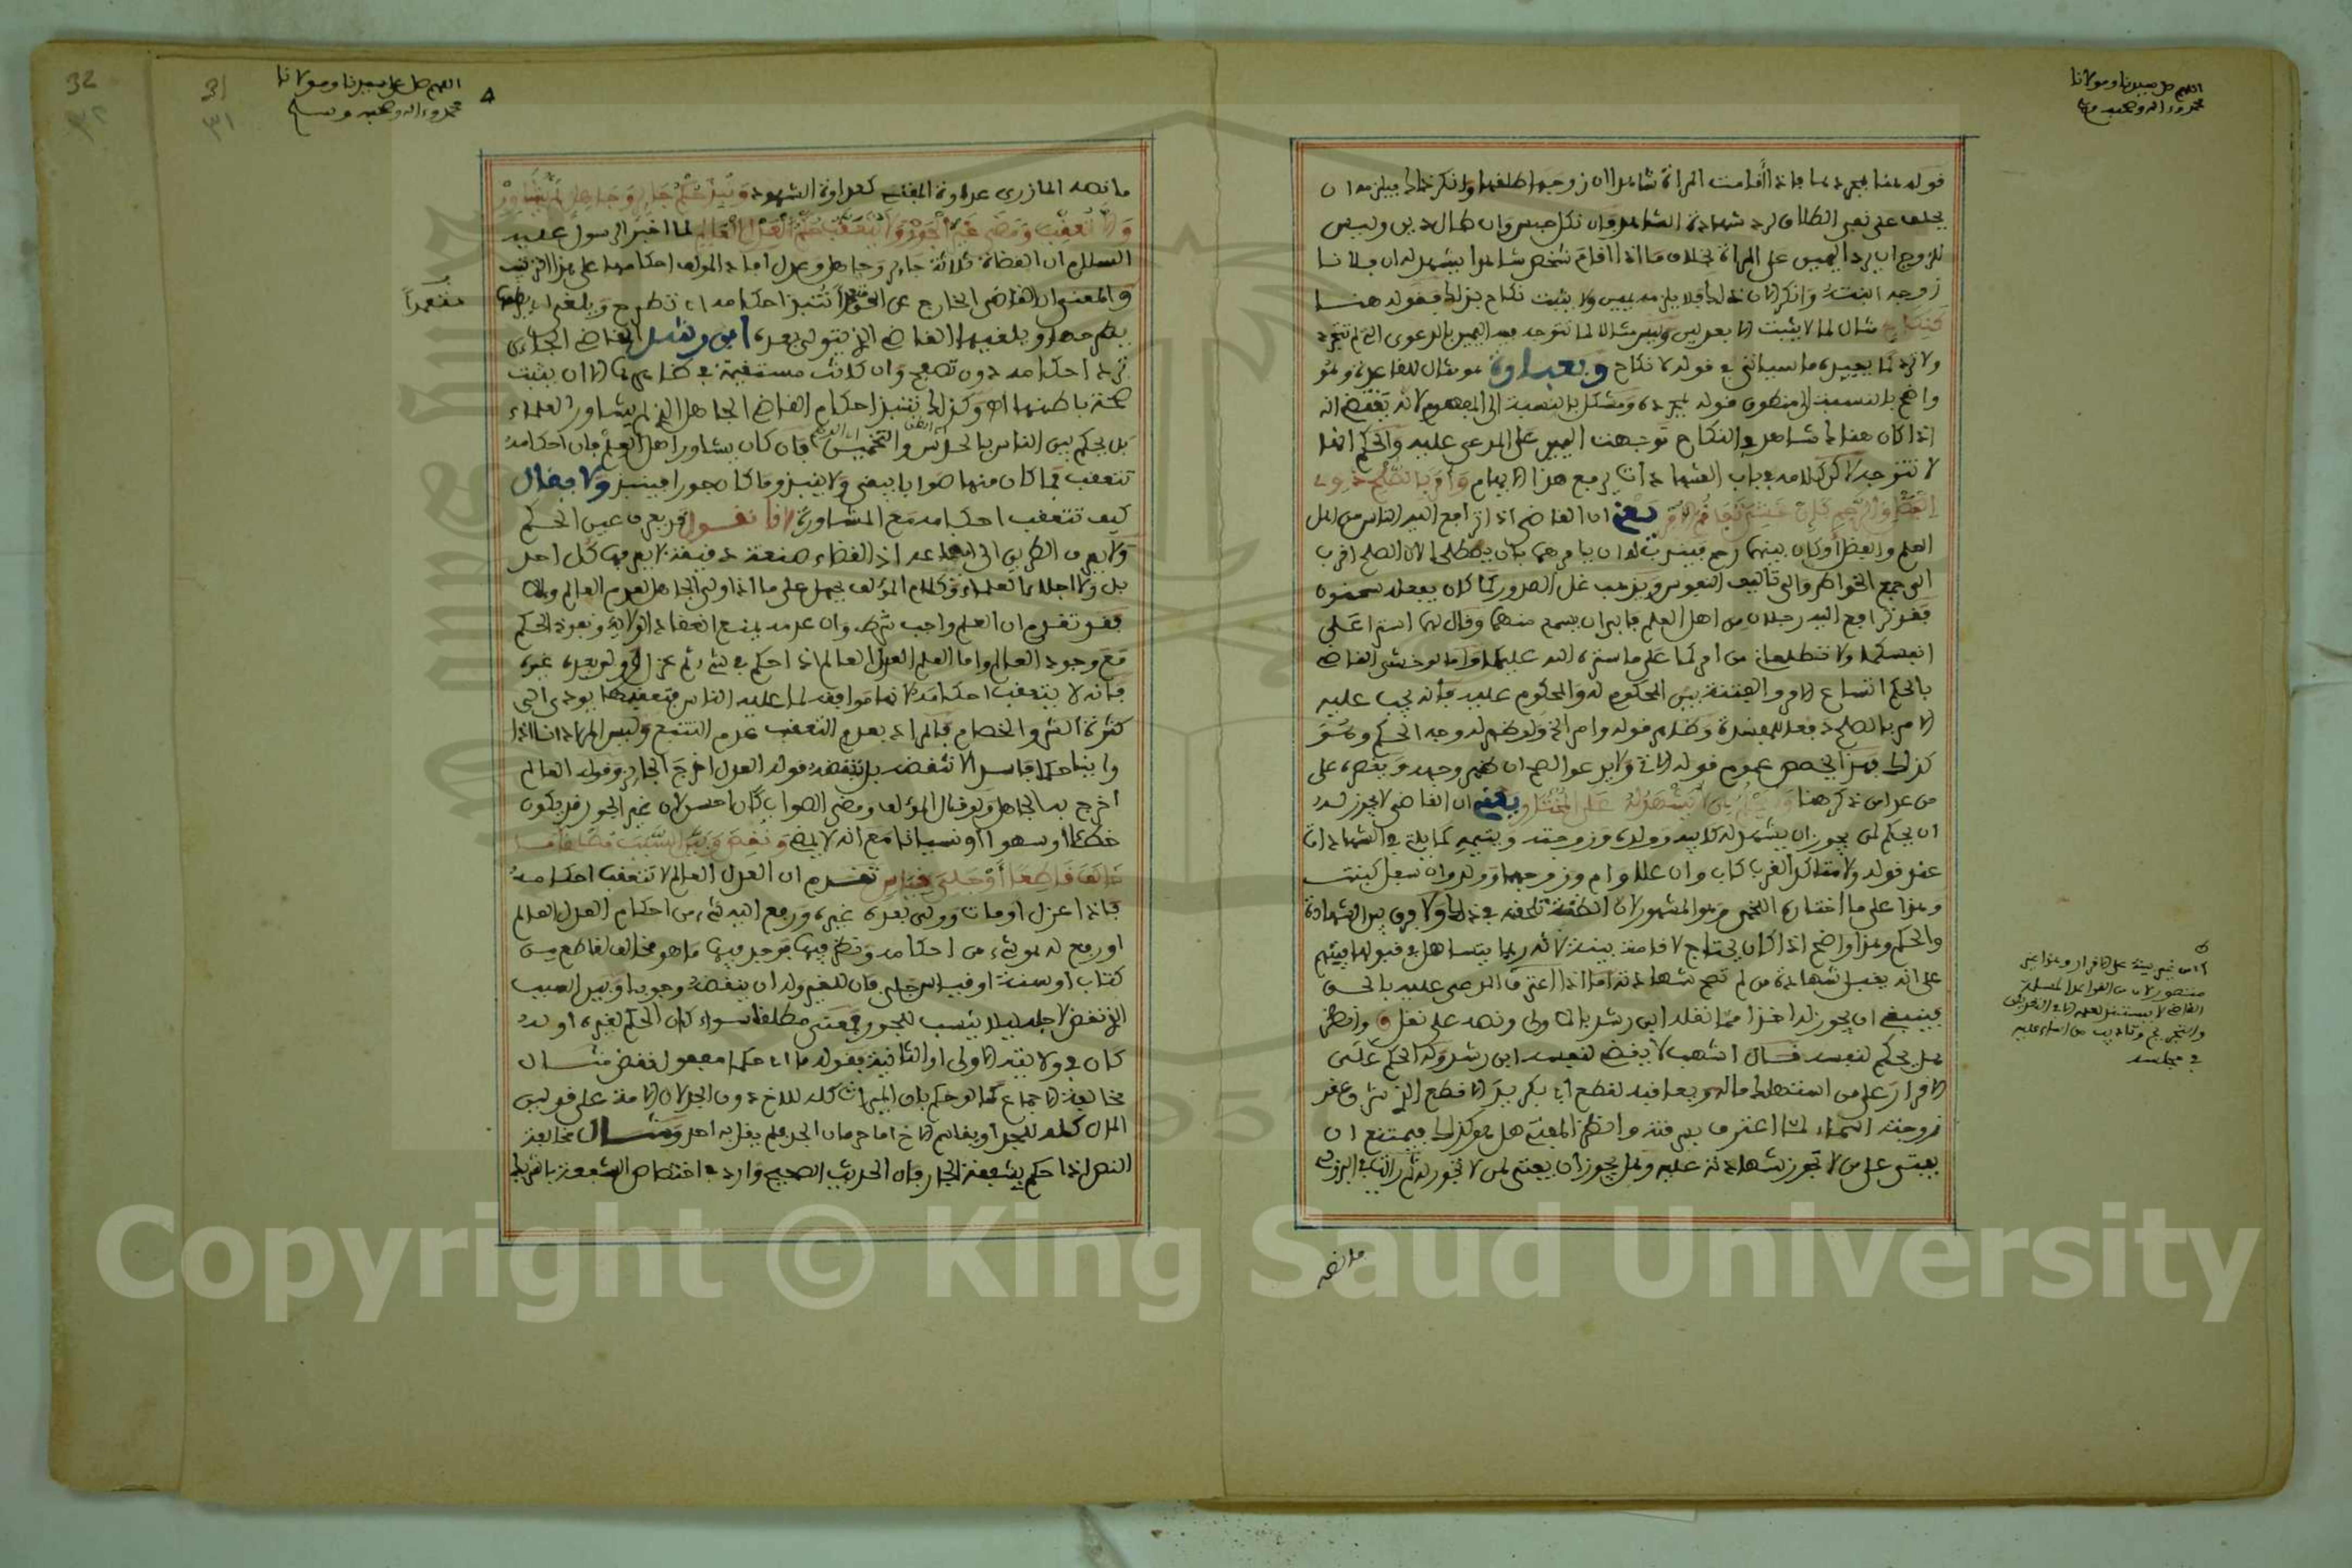 اللهم صل على سيدنا ومولانا
محمد وءاله وصحبه وسلم
قوله هنا بمجردها فاذا أقامت المراة شاهدا ان زوجها طلقها وانكر ذلك فيلزمه ان
يحلف على نفي الطلاق لرد شهادة الشاهد وان نكل حبس وان طال دين وليس
للزوج ان يرد اليمين على المراة بخلاف ما اذا اقام شخص شاهدا يشهد له ان فلانا
زوجه ابنته وانكر الاب ذلك فلا يلزمه يمين ولا يثبت نكاح بذلك فقوله هنا
كنكاح مثال لما لا يثبت الا بعدلين وليس مثالا لما تتوجه فيه اليمين بالدعوى التي لم تتجرد
ولا ترد كما يفيده ما سياتي في قوله لا نكاح وبعداوة هو مثال للقاعدة وهو
واضح بالنسبة الى منطوق قوله بمجرده ومشكل بالنسبة الى المفهوم لانه يقتضي انه
اذا كان هناك شاهد في النكاح توجهت اليمين على المدعى عليه والحكم انها
لا تتوجه لاكن كلامه في باب الشهادات يرفع هذا الايهام وأمر بالصلح ذوي
الفضل والرحم كان خشي تفاقم الامر يعني ان القاضي اذا ترافع اليه الناس من اهل
العلم والفضل أو كان بينهما رحم فيندب له ان يامرهما بان يصطلحا لان الصلح اقرب
الى جمع الخواطر والى تاليف النفوس ويذهب غل الصدور كما كان يفعله سحنون
فقد ترافع اليه رجلان من اهل العلم فابى ان يسمع منهما وقال لهما استرا على
انفسكما ولا تطلعاني من امركما على ما ستره الله عليكما واما لو خشي القاضي
بالحكم اتساع الامر والفتنة بين المحكوم له والمحكوم عليه فانه يجب عليه
الامر بالصلح دفعا للمفسدة وظاهر قوله وامر الخ ولو ظهر له وجه الحكم وهو
كذلك فهذا يخصص عموم قوله الاتي ولا يدعو الصلح ان ظهر وجهه ويقصره على
من عدا من ذكر هنا ولا يحكم لمن لا يشهد له على المختار يعني ان القاضي لا يجوز له
ان يحكم لمن لا يجوز ان يشهد له كابيه وولده وزوجته ويتيمه كما ياتي في الشهادات
عند قوله ولا متاكد القرب كاب وان علا وام وزوجهما وولد وان سفل كبنت
وهذا على ما اختاره اللخمي وهو المشهور لان الظنة تلحقه في ذلك ولا فرق بين الشهادة
والحكم وهذا واضح اذا كان يحتاج لاقامة بينة لانه ربما يتساهل في قبولها فيتهم
على انه يقبل شهادة من لم تصح شهادته اما اذا اعترف المدعى عليه بالحق
فينبغي ان يجوز له اخذا مما نقله ابن رشد بالاولى
هل يحكم لنفسه قال اشهب لا يقضي لنفسه ابن رشد وله الحكم على
الاقرار على من استهلك ماله ويعاقبه لقطع ابي بكر يد الاقطع الذي سرق عقد
زوجته اسماء لما اعترف بسرقته وانظر المفتي هل هو كذلك فيمتنع ان
يفتي على من لا تجوز شهادته عليه وهل يجوز أن يفتي لمن لا تجوز له ثم رايت في البرزلي
ما نصه
القاضي لا يستند لعلمه الا في التعديل
والتجريح وتاديب من اساء عليه
في مجلسه
32
31
اللهم صل على سيدنا ومولانا
محمد وءاله وصحبه وسلم
ما نصه المازري عداوة المفتي كعداوة الشهود ونبذ حكم جاير وجاهل لم يشاور
والا تعقب ومضى غير الجور ولا يتعقب حكم العدل العالم لما اخبر الرسول عليه
السلام ان القضاة ثلاثة جاير وجاهل وعدل افاد المؤلف احكامها على هذا الترتيب
والمعنى ان القاضي الخارج عن الحق تنبذ احكامه اي تطرح ويلغي
متعمدا
يطرحها ويلغيها القاضي الذي يتولى بعده ابن رشد القاضي الجائر
ترد احكامه دون تصفح وان كانت مستقيمة في ظاهرها الا ان يثبت
صحة باطنها اه وكذلك تنبذ احكام القاضي الجاهل الذي لم يشاور العلماء
بل يحكم بين الناس بالحدس والتخمين فان كان يشاور اهل العلم فان احكامه
تتعقب فما كان منها صوابا يمضي ولا ينبذ وما كان جورا فينبذ ولا يقال
كيف تتعقب احكامه مع المشاورة لانا نقول قد يعرف عين الحكم
ولا يعرف الطريق الى ايقاعه اذ القضاء صنعة دقيقة لا يعرفها كل احد
بل ولا اجلاء العلماء وكلام المؤلف يحمل على ما اذا ولي الجاهل لعدم العالم والا
فقد تقدم ان العلم واجب شرط وان عدمه يمنع انعقاد الولاية ونفوذ الحكم
مع وجود العالم واما العلم العدل العالم اذا حكم في شيء ثم عزل وولي بعده غيره
فانه لا يتعقب احكامه لانها موافقة لما عليه الناس فتعقبها يودي الى
كثرة الشر والخصام فالمراد بعدم التعقب عدم التتبع وليس المراد انا اذا
راينا حكما فاسدا لا ننقضه بل ننقضه قوله العدل اخرج الجاير وقوله العالم
اخرج به الجاهل ولو قال المؤلف ومضى الصواب كان احسن لان غير الجور قد يكون
خطئا او سهوا او نسيانا مع انه لا يمضي ونقض وبين السبب مطلقا ما
خالف قاطعا أو جلي قياس تقدم ان العدل العالم لا تتعقب احكامه
فاذا عزل او مات وولي بعده غيره ورفع اليه شيء من احكام العدل العالم
او رفع له هو شيء من احكامه ونظر فيها فوجد فيها ما هو مخالف لقاطع من
كتاب او سنة او قياس جلي فان للغير وله ان ينقضه وجوبا ويبين السبب
الذي نقض لاجله ليلا ينسب للجور ومعنى مطلقا سواء كان الحكم لغيره او له
كان في ولايته الاولى او الثانية فقوله ما اي حكما مفعول نقض مثال
مخالفة الاجماع كما لو حكم بان الميراث كله للاخ دون الجد لان الامة على قولين
المال كله للجد أو يقاسم الاخ اما حرمان الجد فلم يقل به احد ومثال مخالفة
النص اذا حكم بشفعة الجار فان الحديث الصحيح وارد في اختصاص الشفعة بالشريك
Copyright © King Saud University